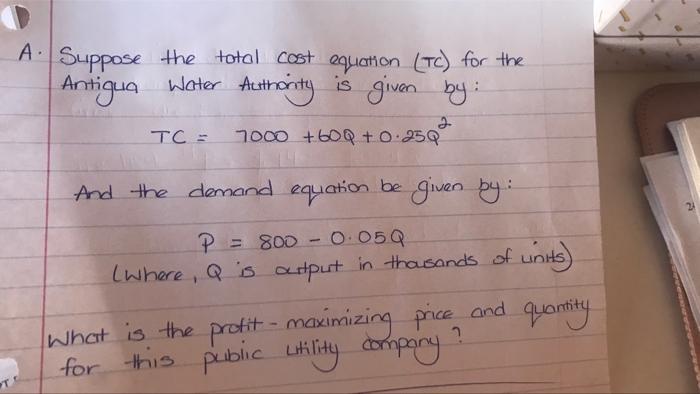 A. Suppose the total cost equation (TC) for the
Antigua Water Authority is given by:
TC = 7000 + 60Q + 0.25Q²
And the demand equation be given by:
P = 800 - 0.05Q
(where, Q is output in thousands of units)
What is the profit-maximizing price and quantity
for this public utility company?